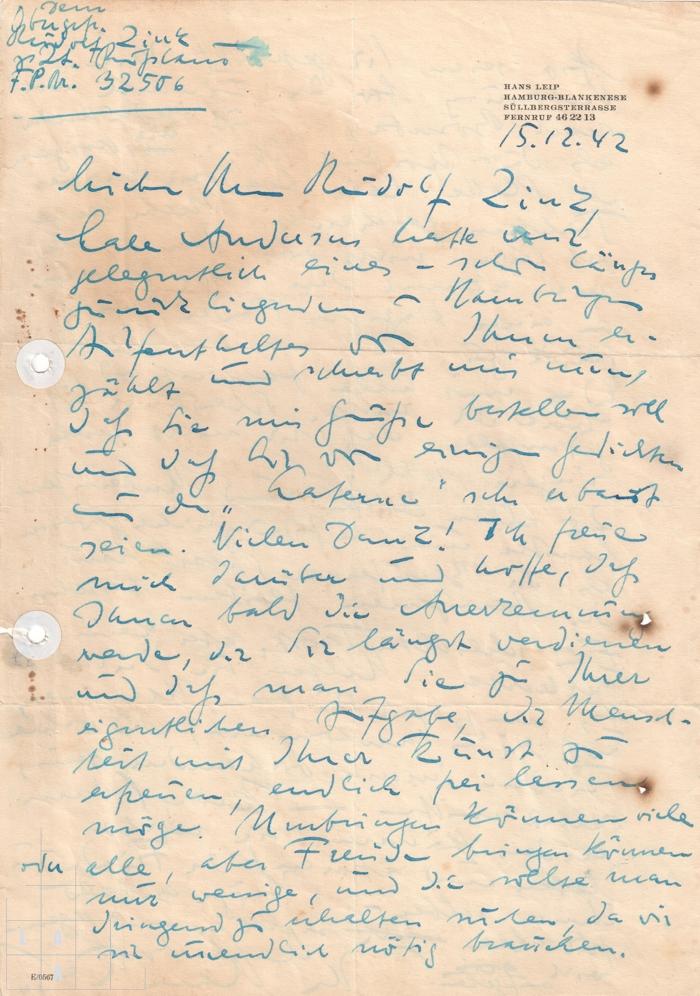 dem
Obergefr.
Rudolf Zink
z. Zt. Rußland
F.P.Nr. 32506
HANS LEIP
HAMBURG-BLANKENESE
SÜLLBERGSTERRASSE
FERNRUF 46 22 13
15.12.42
Lieber Herr Rudolf Zink,
Lale Andersen hatte mir
gelegentlich eines – schon länger
zurückliegenden – Hamburger
Aufenthaltes von Ihnen er-
zählt und schreibt mir nun,
daß sie mir Grüße bestellen soll
und daß Sie von einigen Gedichten
aus der „Laterne" sehr erbaut
seien. Vielen Dank! Ich freue
mich darüber und hoffe, daß
Ihnen bald die Anerkennung
werde, die Sie längst verdienen
und daß man Sie zu Ihrer
eigentlichen Aufgabe, die Mensch-
heit mit Ihrer Kunst zu
erfreuen, endlich frei lassen
möge. Umbringen können viele
oder alle, aber Freude bringen können
nur wenige, und die sollte man
dringend zu erhalten suchen, da wir
sie unendlich nötig brauchen.
E/0567